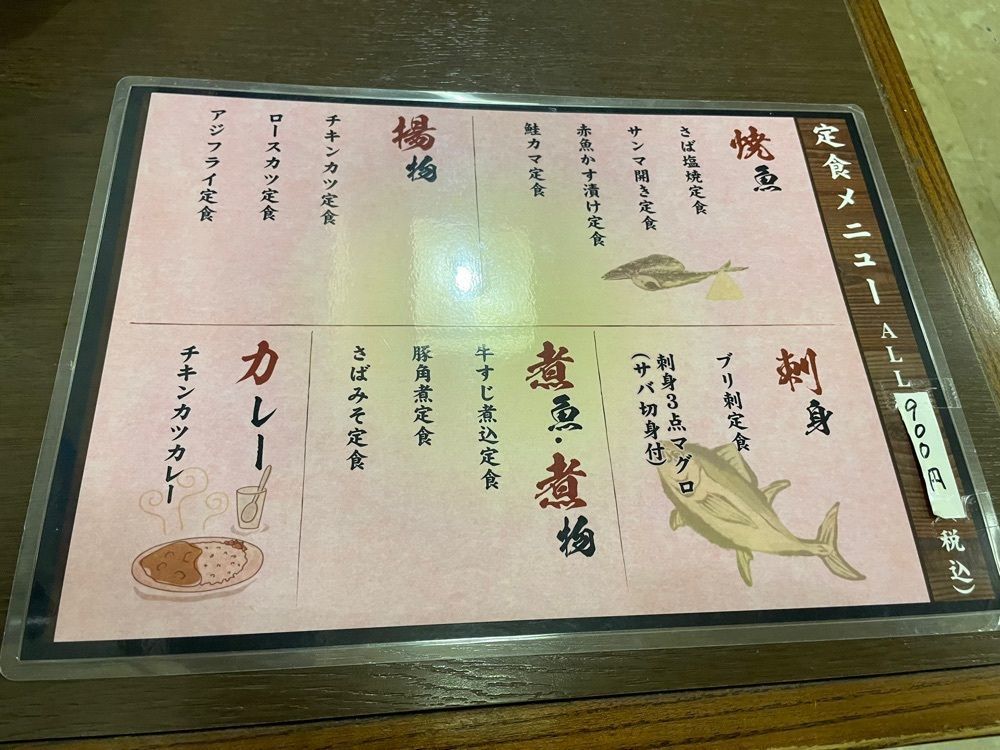 定食メニュー ALL 900円 税込)
焼魚
さば塩焼定食
サンマ開き定食
赤魚かす漬け定食
鮭カマ定食
揚物
チキンカツ定食
ロースカツ定食
アジフライ定食
刺身
ブリ刺定食
刺身3点マグロ
(サバ切身付)
煮魚・煮物
牛すじ煮込定食
豚角煮定食
さばみそ定食
カレー
チキンカツカレー